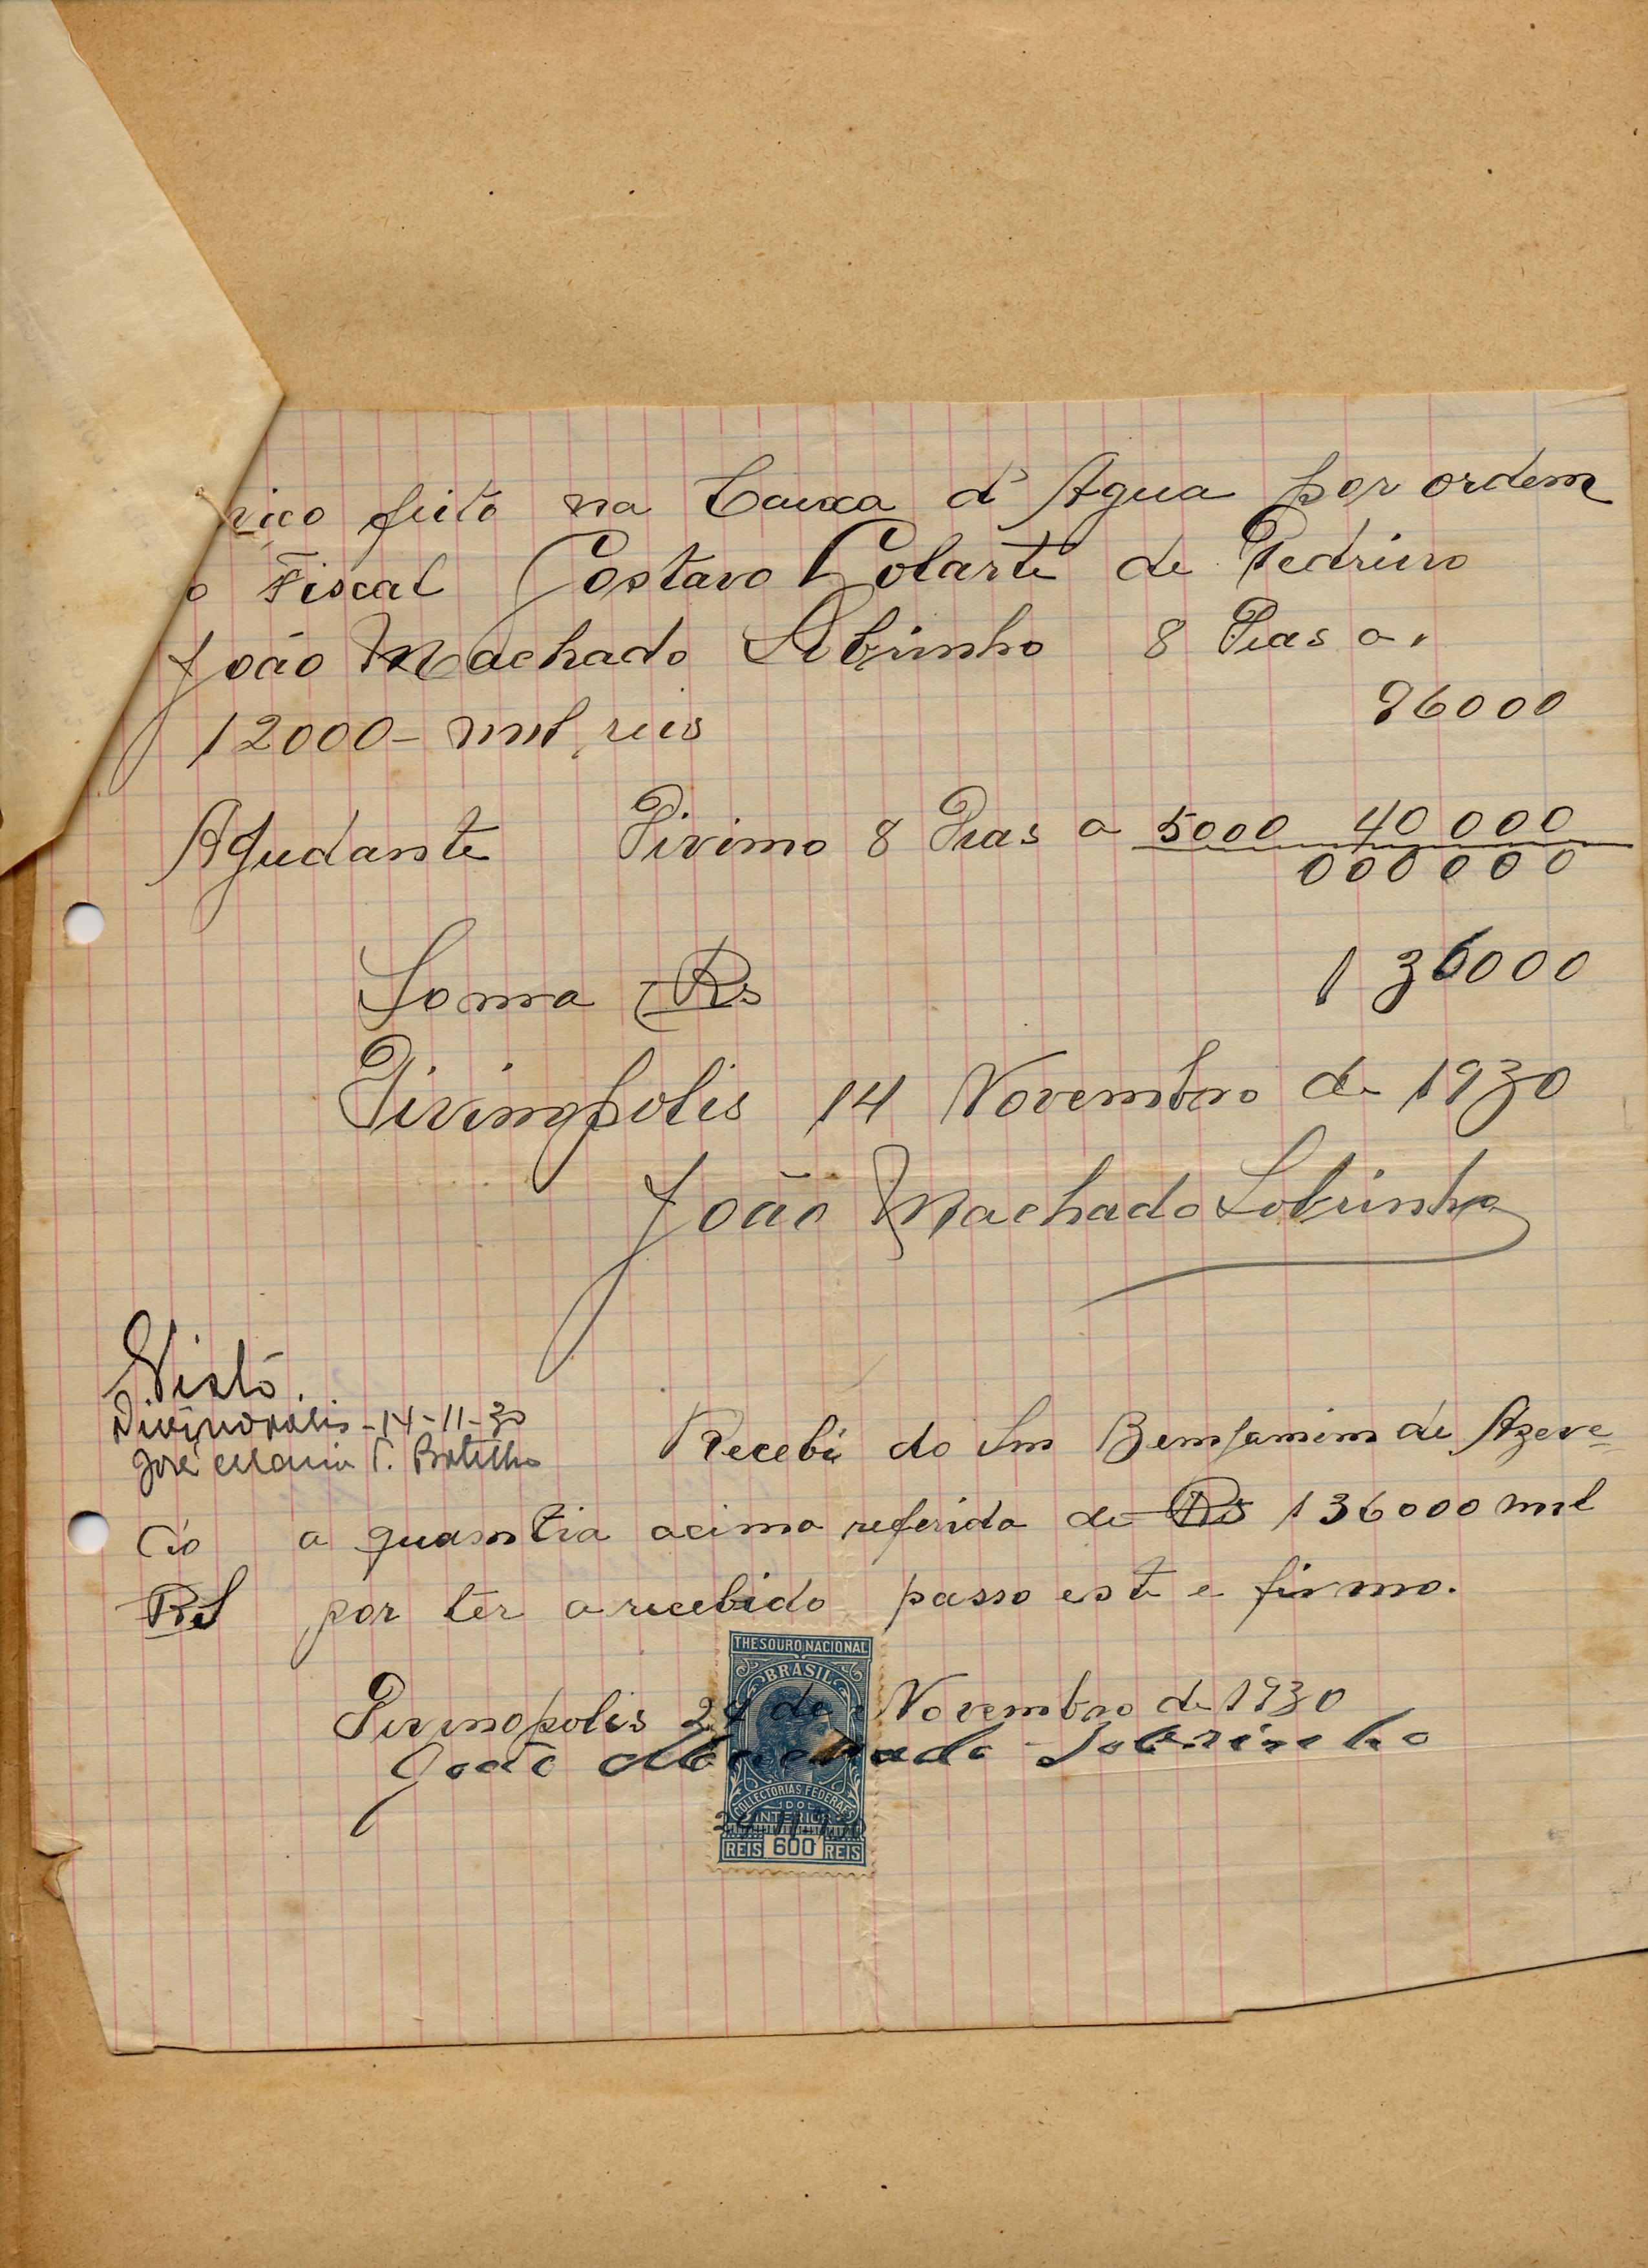 viço feito na Caixa d'Agua por ordem
o Fiscal Gostavo Golarte de Pedriero
João Machado Sobrinho 8 Dias a
12000 - mil reis 96000
Ajudante Divino 8 Dias a 5000 40000
000000
Soma Rs 136000
Divinopolis 14 Novembro de 1930
João Machado Sobrinho
Visto.
Divinopolis - 14-11-30
José Maria Botelho
Recebi do Snr Benjamim de Azeve
a quantia acima referida de Rs 136000 mil
Rs por ter a recebido passo este e firmo.
THESOURO NACIONAL
BRASIL
Divinopolis 29 de Novembro de 1930
João Machado Sobrinho
COLLECTORIAS FEDERAES
DO
INTERIOR
REIS 600 REIS